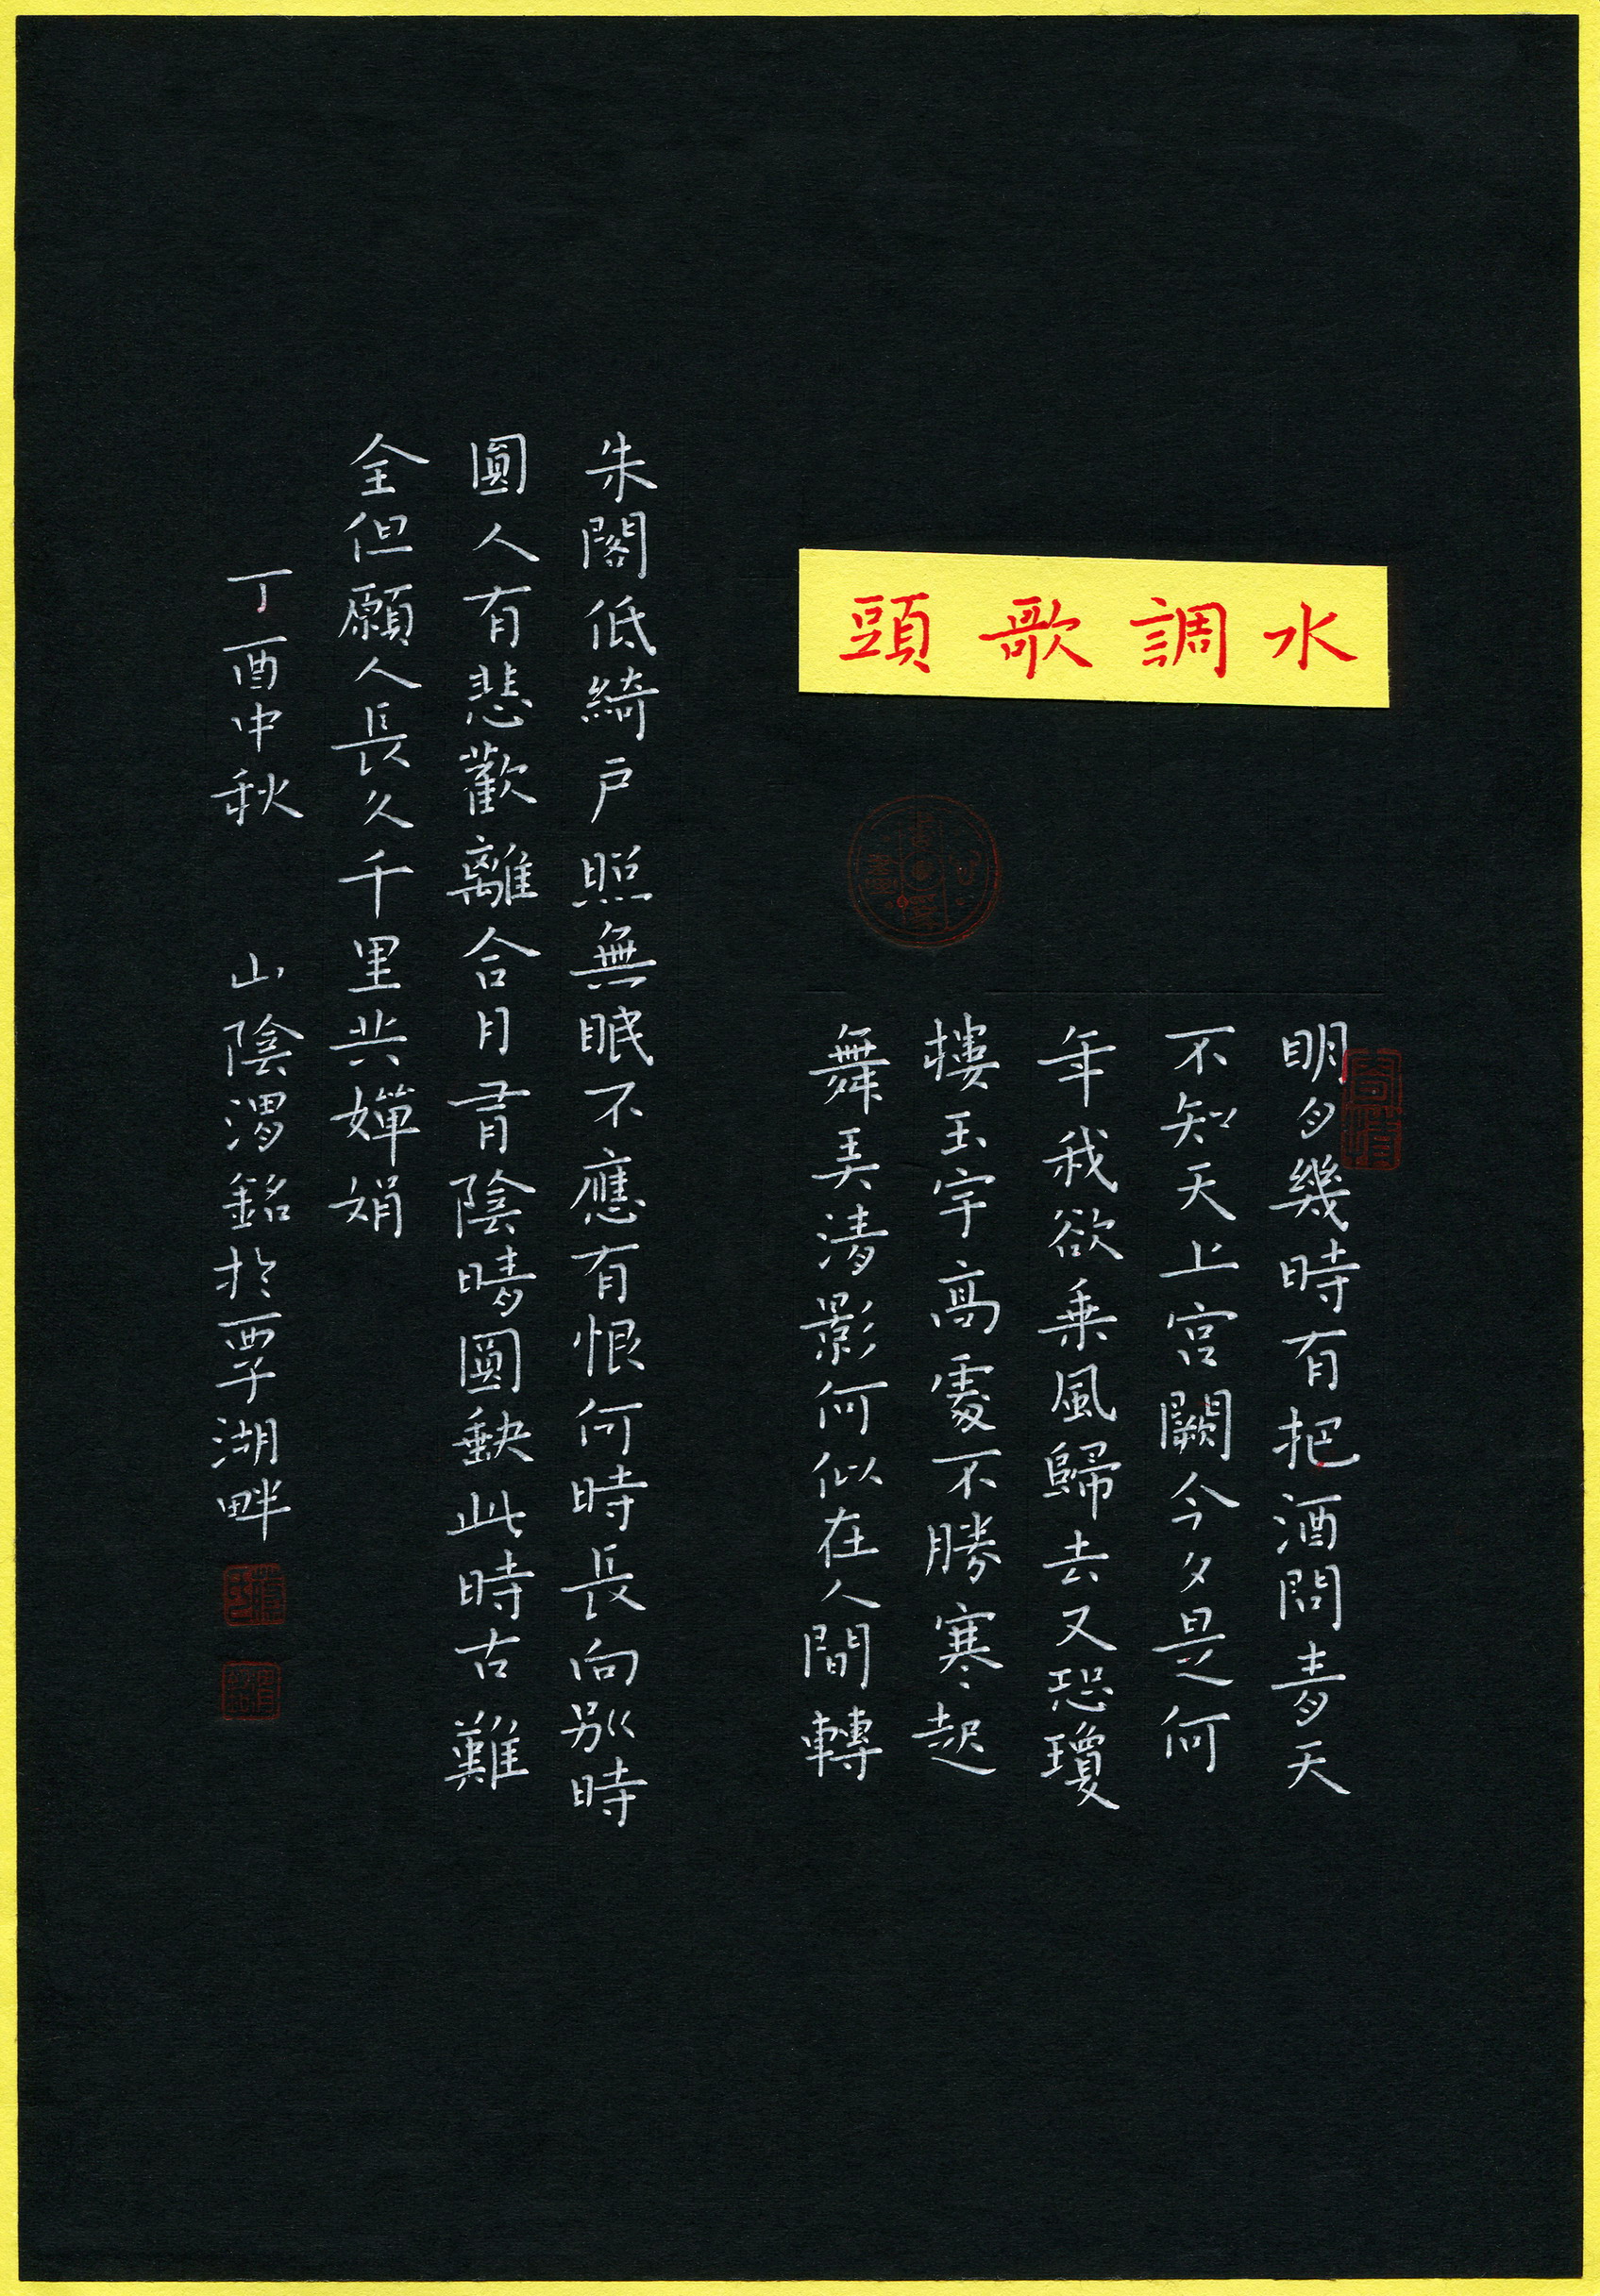 水調歌頭
明月幾時有把酒問青天
不知天上宫闕今夕是何
年我欲乗風歸去又恐瓊
樓玉宇高處不勝寒起
舞弄清影何似在人間轉
朱閣低綺户照無眠不應有恨何時長向别時
圓人有悲歡離合月有陰晴圓缺此時古難
全但願人長久千里共嬋娟
丁酉中秋 山陰渭銘於覃湖畔